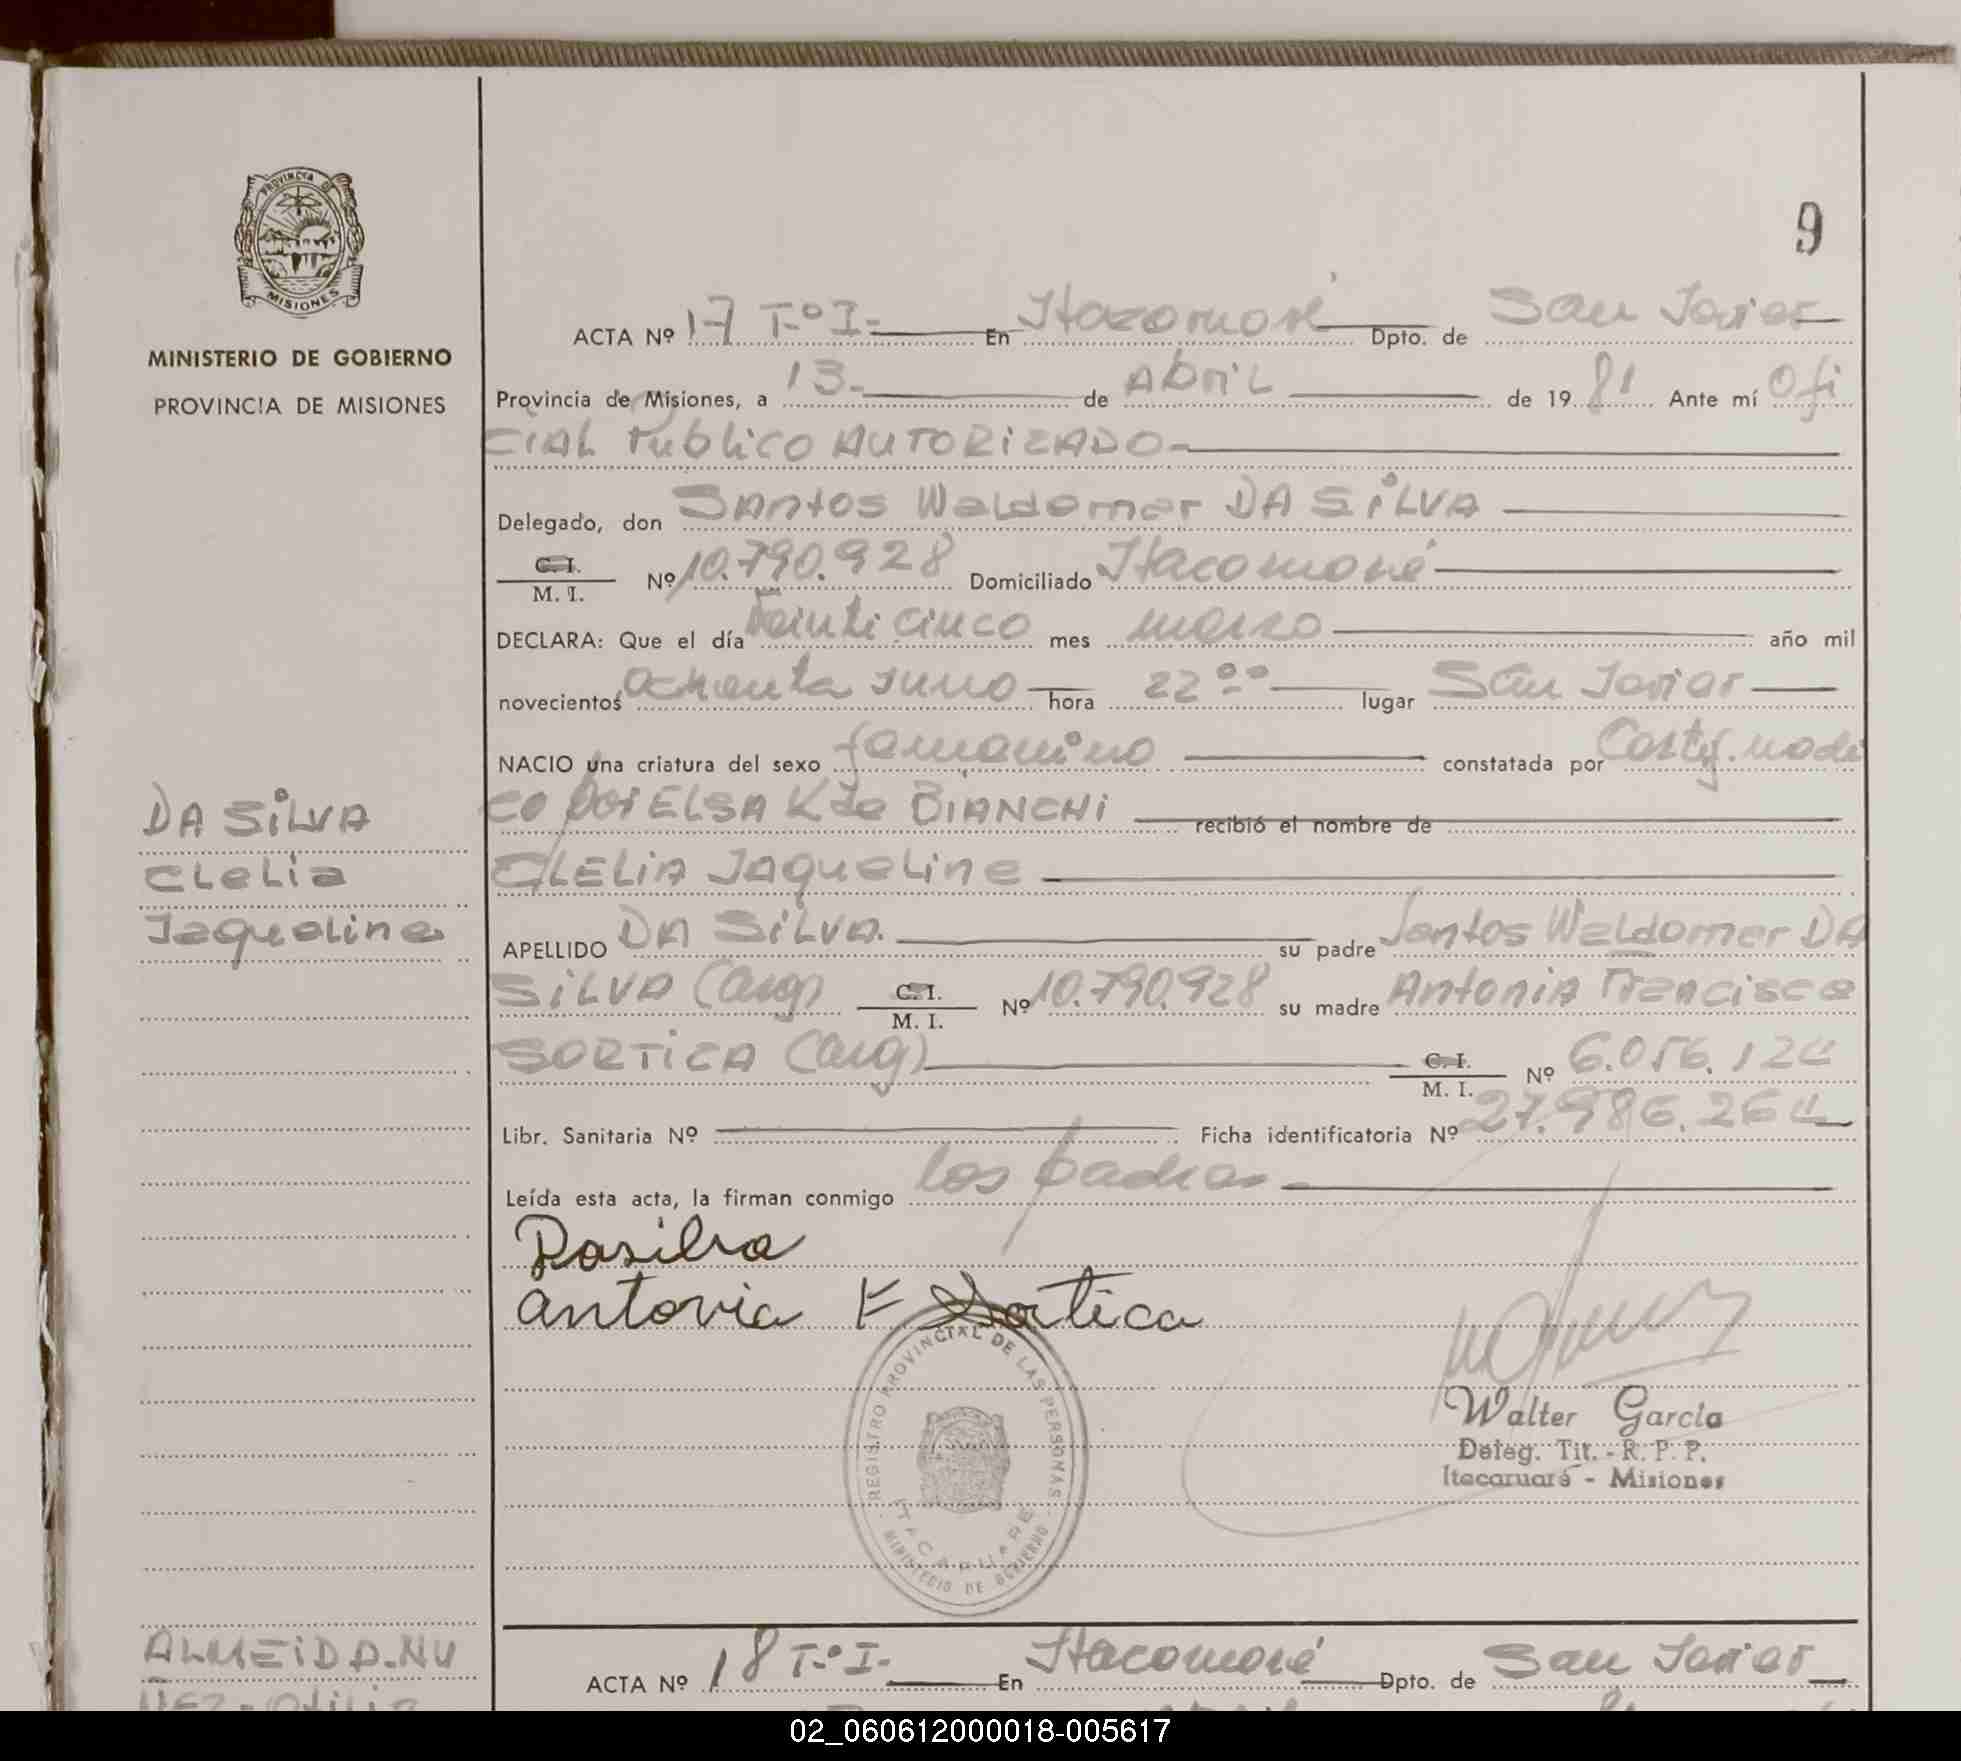 9
PROVINCIA DE
MISIONES
MINISTERIO DE GOBIERNO
PROVINCIA DE MISIONES
ACTA Nº 17 T.º I.- En Itacaruaré Dpto. de San Javier
Provincia de Misiones, a 13.- de Abril de 1981 Ante mí Ofi
cial Publico AUTORIZADO-
Delegado, don Santos Waldomar DA SILVA
C. I.
M. I. Nº 10.790.928 Domiciliado Itacaruaré
DECLARA: Que el día Veinti cinco mes marzo año mil
novecientos ochenta y uno hora 22 oo lugar San Javier
NACIO una criatura del sexo femenino constatada por Certf. medi
co por ELSA K de BIANCHI recibió el nombre de
CLELIA Jaqueline
DA SILVA
Clelia
Jaqueline
APELLIDO DA SILVA. su padre Santos Waldomar DA
SILVA (arg) C. I.
M. I. Nº 10.790.928 su madre Antonia Francisca
SORTICA (arg) C. I.
M. I. Nº 6.056.124
Libr. Sanitaria Nº Ficha identificatoria Nº 27.986.264
Leída esta acta, la firman conmigo los padres-
Dasilva
Antonia F Sortica
REGISTRO PROVINCIAL DE LAS PERSONAS
ITACARUARE
MINISTERIO DE GOBIERNO
Walter García
Deleg. Tit. - R. P. P.
Itacaruaré - Misiones
ALMEIDA.NU
ÑEZ-Otilia
ACTA Nº 18 T.º I.- En Itacaruaré Dpto. de San Javier
02_060612000018-005617